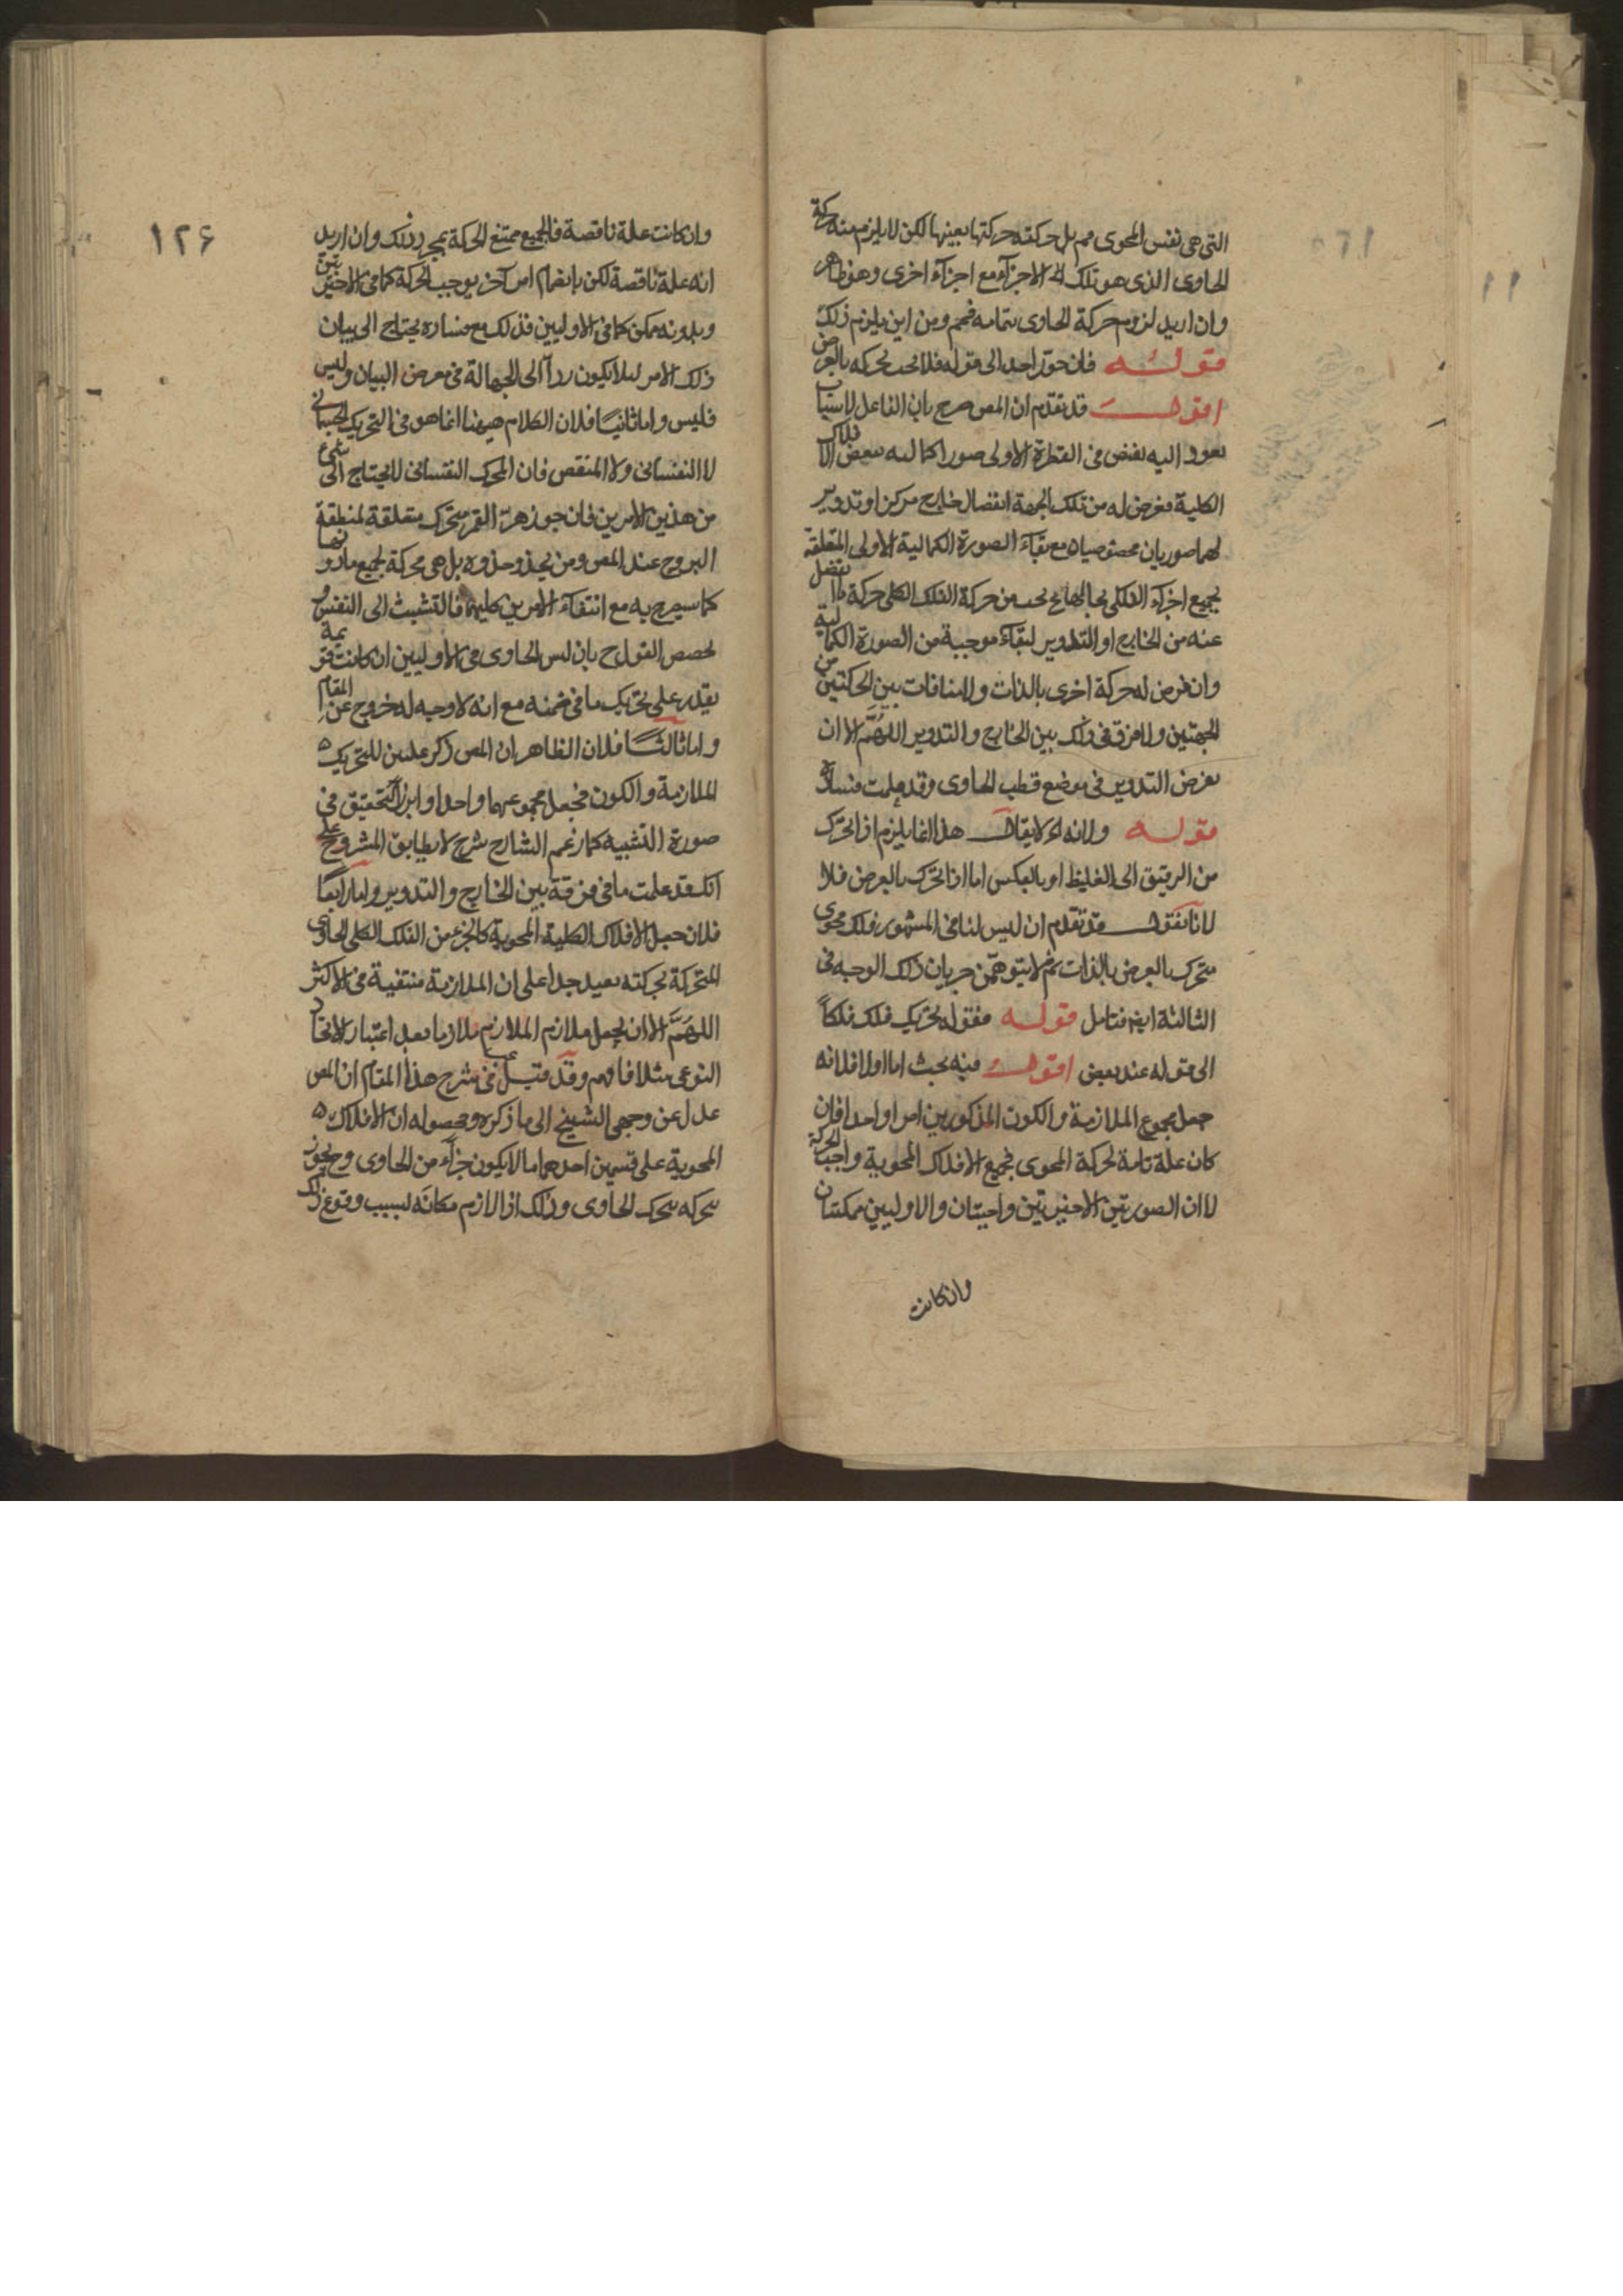 التى هى نفس المحوى مم بل حركته حركتها بعينها لكن لا يلزم منه حركة
الحاوى الذى هو تلك الاجزآء مع اجزآء اخرى وهو ظاهر
وان اريد لزوم حركة الحاوى بتمامه فمم ومن اين يلزم ذلك
قوله فان جوز احد الى قوله فلا يجب تحركه بالعرض
اقول قد تقدم ان المص صرح بان الفاعل لاسباب
تعود اليه يفيض فى الفطرة الاولى صورا كمالية ببعض الافلاك
الكلية فعرض له من تلك الجهة انفصال خارج مركز او تدوير
لهما صورتان مع بقآء الصورة الكمالية الاولى المتعلقة
بجميع اجزآء الفلكى بحالها يجب من حركة الفلك الكلى حركة ما انفصل
عنه من الخارج او التدوير لبقآء موجبة من الصورة الكمالية
وان فرض له حركة اخرى بالذات ولا منافات بين الحركتين من
الجهتين ولا فرق فى ذلك بين الخارج والتدوير اللهم الا ان
يعرض التدوير فى موضع قطب الحاوى وقد علمت فساده
قوله ولانه اه لا يقال هذا انما يلزم اذا تحرك
من الرقيق الى الغليظ او بالعكس اما اذا تحرك بالعرض فلا
لانا نقول قد تقدم ان ليس لنا فى المشهور فلك محوى
متحرك بالعرض بالذات ثم لا يتوهمن جريان ذلك الوجه فى
الثالثة ايض فتامل قوله فقوله بتحريك فلك فلكاً
الى قوله عند بعض اقول فيه بحث اما اولا فلانه
جعل مجموع الملازمة والكون المذكورين امرا واحدا فان
كان علة تامة لحركة المحوى فجميع الافلاك المحوية واجبة الحركة
لا ان الصورتين الاخيرتين واجبتان والاوليين ممكنتان
وان كانت
١٢۶
وان كانت علة ناقصة فالجميع ممتنع الحركة بمجرد ذلك وان اريد
انه علة ناقصة لكن بانضمام امر آخر يوجب الحركة كما فى الاخيرتين
وبدونه ممكن كما فى الاوليين فذلك مع فساده يحتاج الى بيان
ذلك الامر لئلا يكون رداً الى الجهالة فى معرض البيان وليس
فليس واما ثانياً فلان الكلام هيهنا انما هو فى التحريك الجسمانى
لا النفسانى ولا المنقص فان المحرك النفسانى لا يحتاج الى شئ
من هذين الامرين فان جوزهرّ القمر متحرك متعلقة لمنطقة
البروج عند المص ومن يحذو حذوه بل هى محركة لجميع ما دونها
كما سيصرح به مع انتفآء الامرين كليهما فالتشبث الى النفس
يخصص القول ح بان نفس الحاوى فى الاوليين ان كانت قوية
يقدر على تحريك ما فى ضمنه مع انه لا وجه له خروج عن المقام
واما ثالثاً فلان الظاهر ان المص ذكر علتين للتحريك
الملازمة والكون فجعل مجموعهما واحدا وابراز التحقيق فى
صورة التشبيه كما زعم الشارح شرح لا يطابق المشروح على
انك قد علمت ما فى فرقة بين الخارج والتدوير واما رابعاً
فلان جعل الافلاك الكلية المحوية كالجزء من الفلك الكلى الحاوى
المتحركة بحركته بعيد جدا على ان الملازمة منتفية فى الاكثر
اللهمّ الا ان يجعل ملازم الملازم ملازما بعد اعتبار الاتحاد
النوعى مثلا فافهم وقد قيل فى شرح هذا المقام ان المص
عدل عن وجهى الشيخ الى ما ذكره ومحصوله ان الافلاك
المحوية على قسمين احدهما ما لا يكون جزأً من الحاوى وح يجوز
تحركه بتحرك الحاوى وذلك اذا لازم مكانه لسبب وقوع ذلك